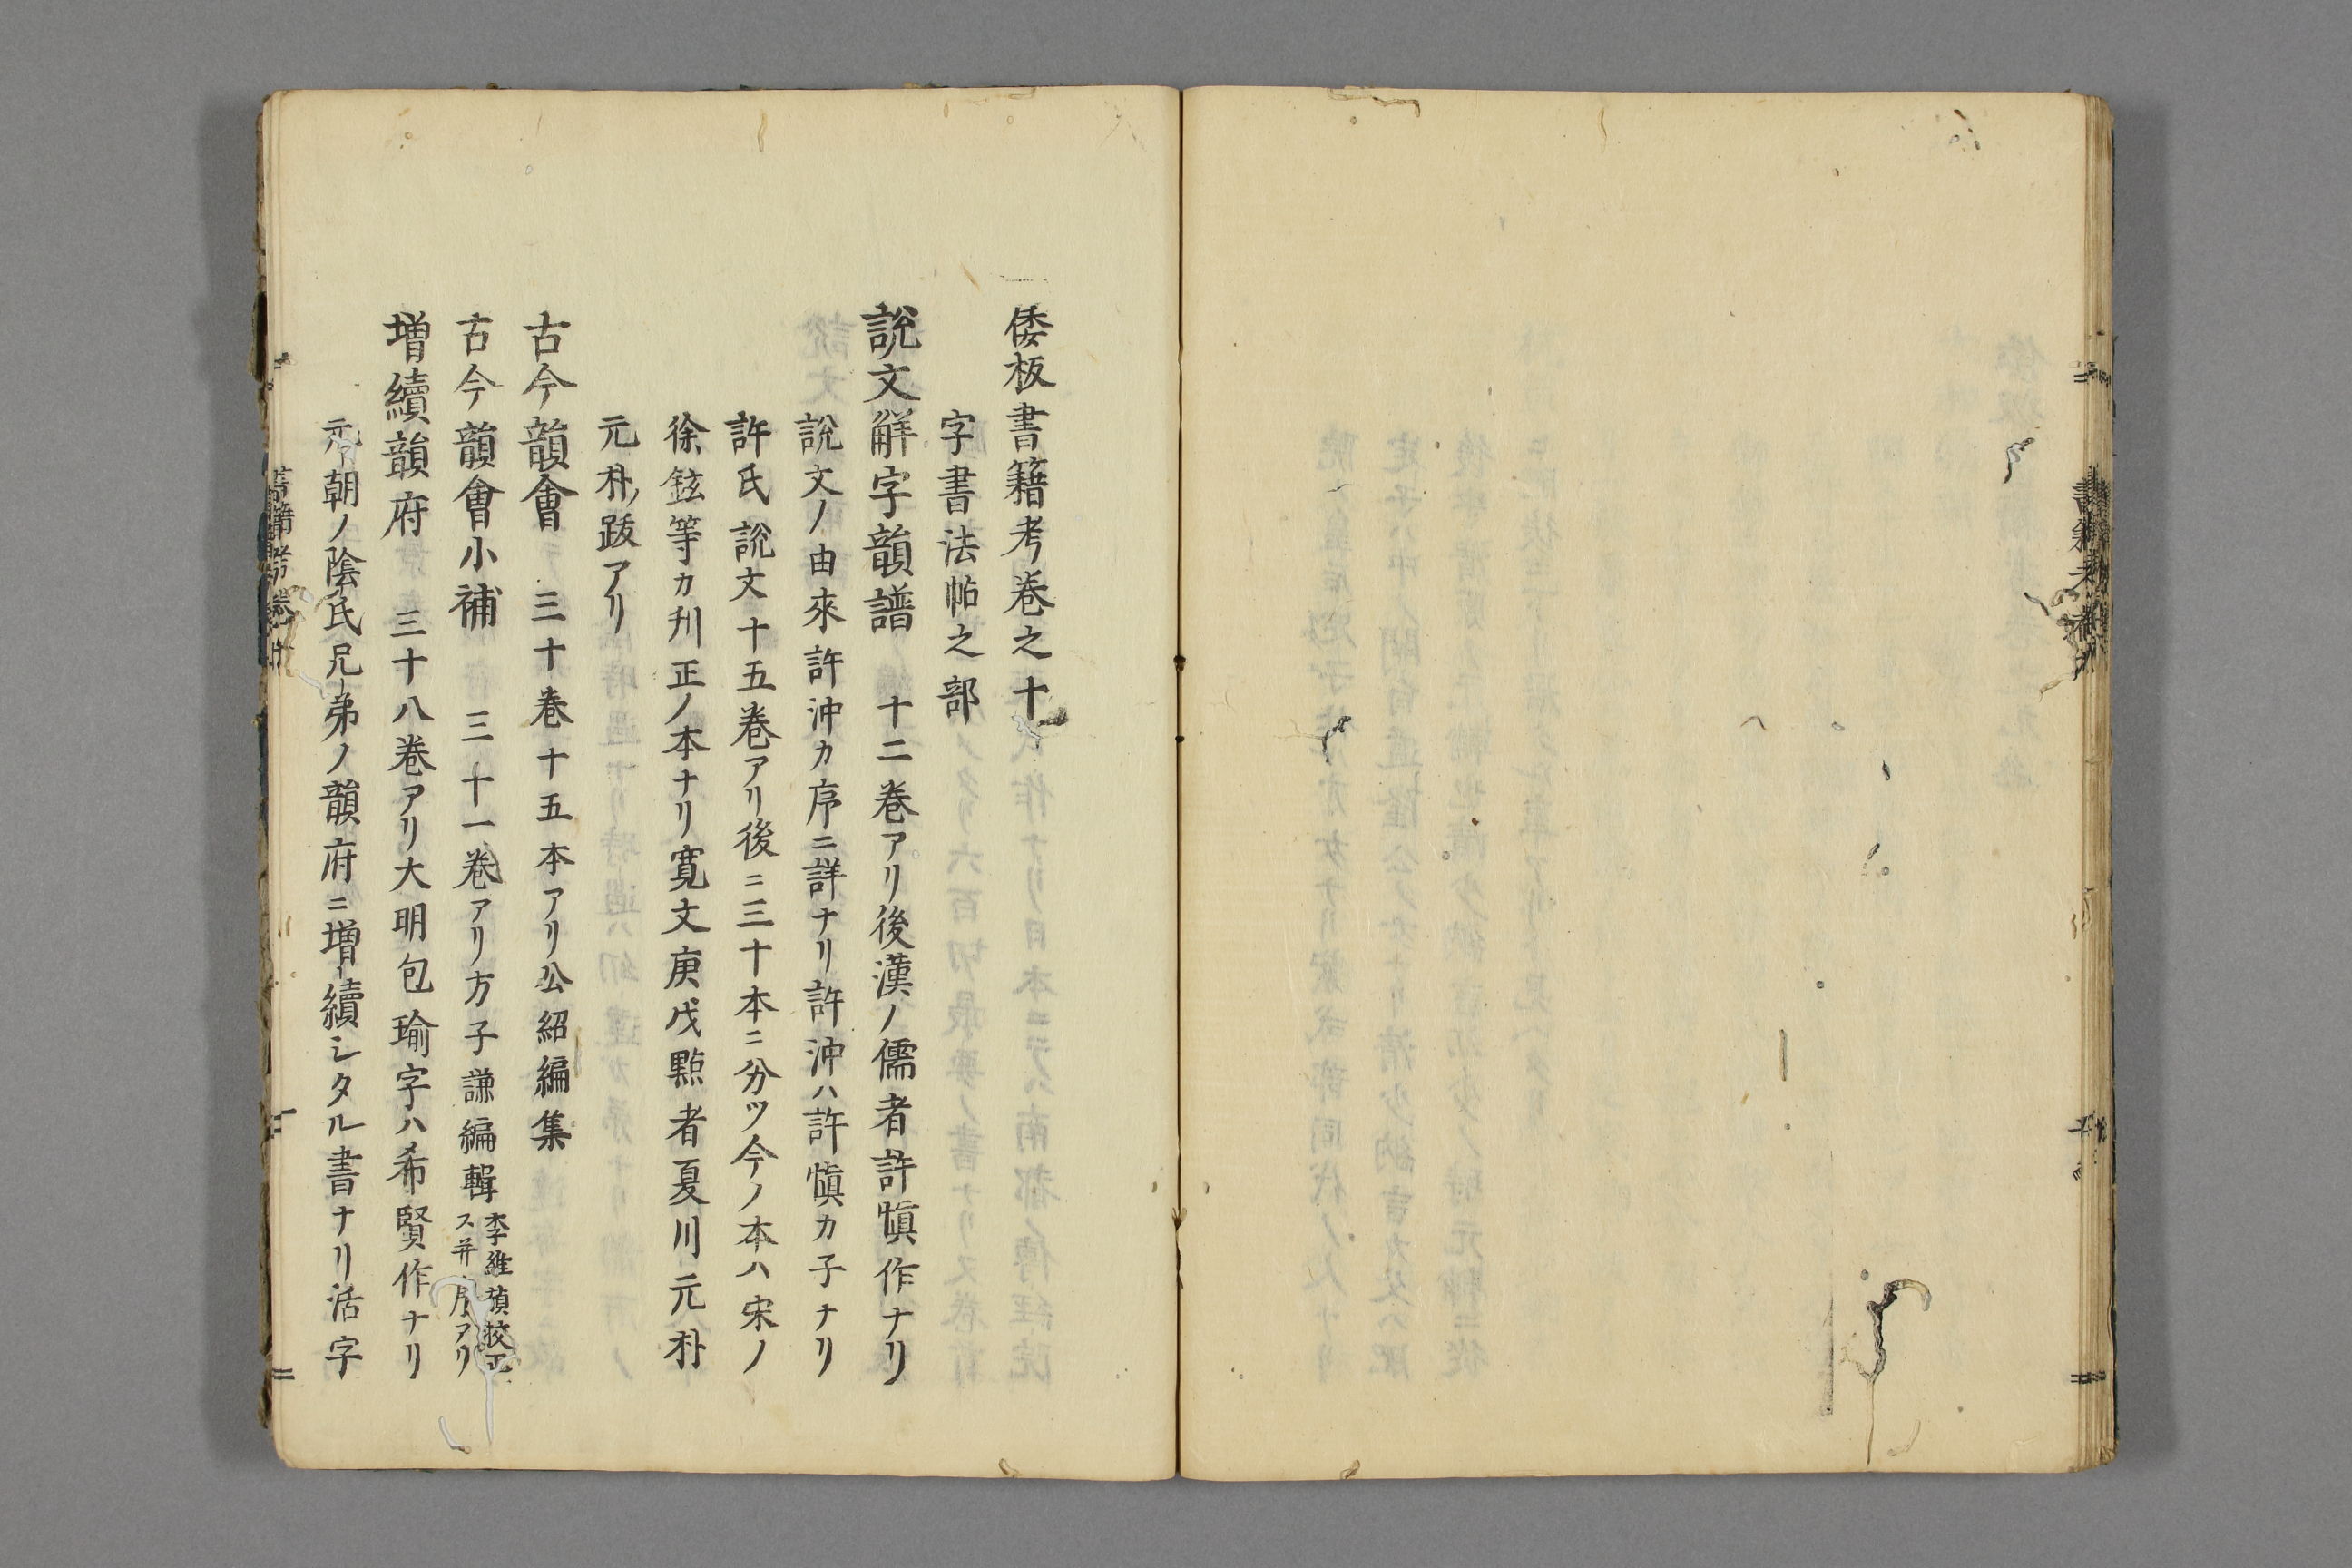 倭板書籍考巻之十
字書法帖之部
說文解字韻譜　十二巻アリ後漢ノ儒者許愼作ナリ
說文ノ由來許沖カ序ニ詳ナリ許沖ハ許愼カ子ナリ
許氏說文十五巻アリ後ニ三十本ニ分ツ今ノ本ハ宋ノ
徐鉉等カ刋正ノ本ナリ寛文庚戌點者夏川元朴
元朴ノ跋アリ
古今韻會　三十巻十五本アリ公紹編集
古今韻會小補　三十一巻アリ方子謙編輯李維禎校正
ス并ニ序アリ
増續韻府　三十八巻アリ大明包瑜字ハ希賢作ナリ
元朝ノ陰氏兄弟ノ韻府ニ増續シタル書ナリ活字
書籍考巻十